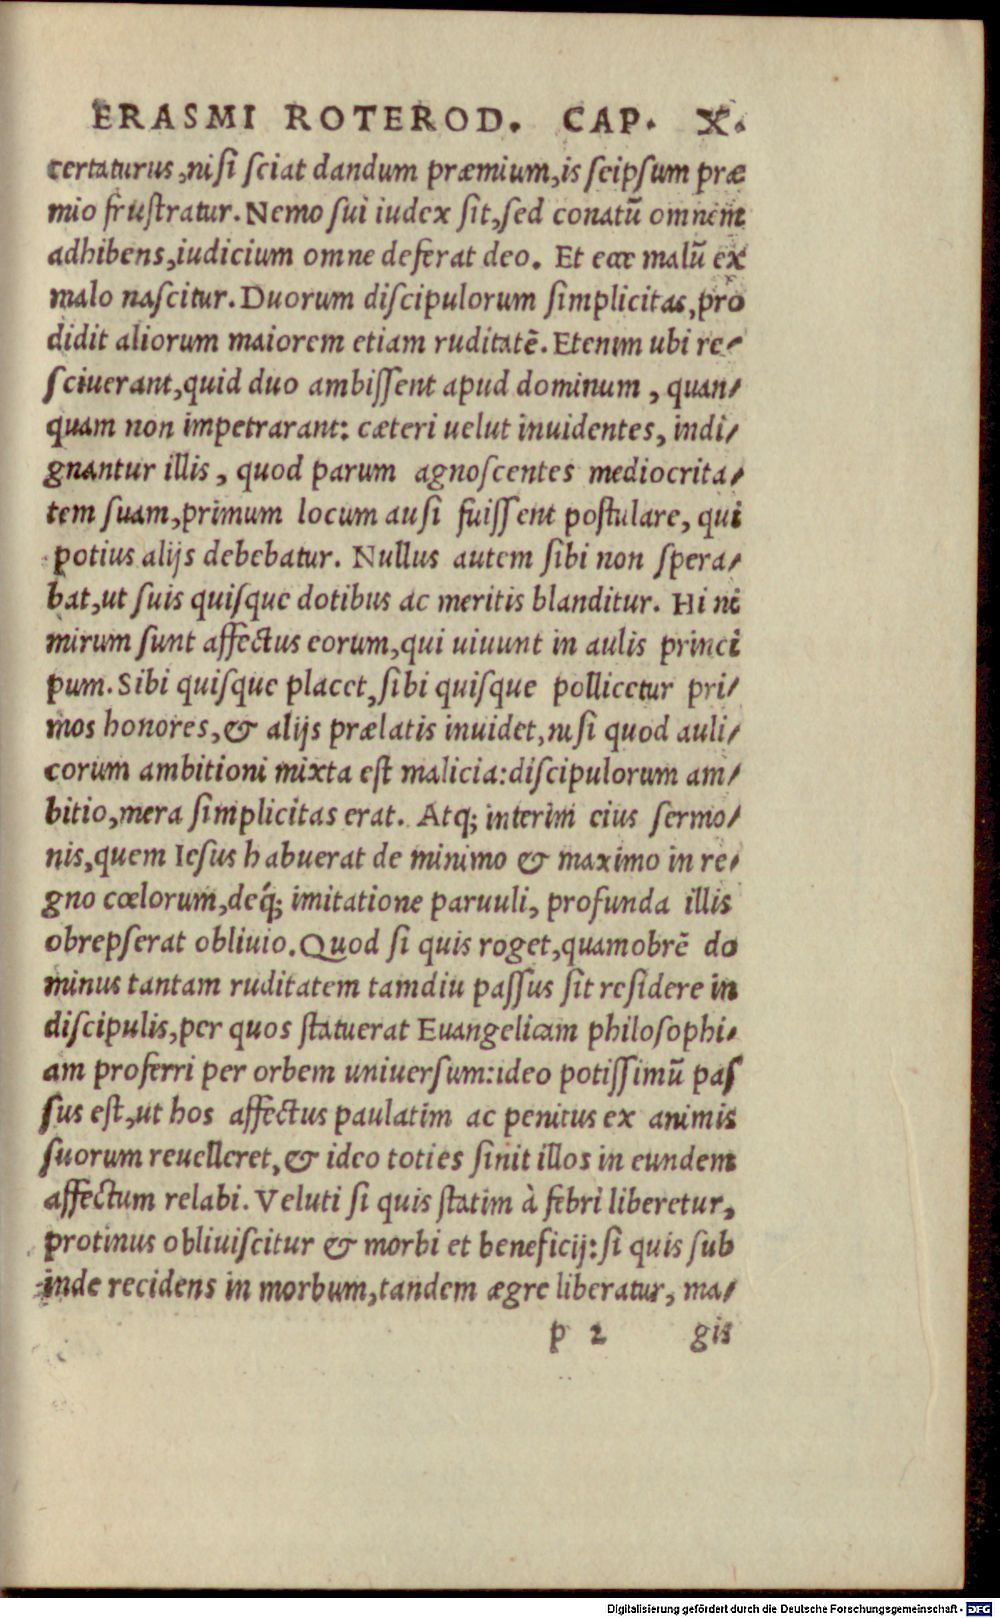 ERASMI ROTEROD. CAP. X.
certaturus, nisi sciat dandum præmium, is seipsum præ
mio frustratur. Nemo sui iudex sit, sed conatū omnem
adhibens, iudicium omne deferat deo. Et ecce malū ex
malo nascitur. Duorum discipulorum simplicitas, pro
didit aliorum maiorem etiam ruditatē. Etenim ubi re-
sciuerant, quid duo ambissent apud dominum, quan-
quam non impetrarant: cæteri uelut inuidentes, indi-
gnantur illis, quod parum agnoscentes mediocrita-
tem suam, primum locum ausi fuissent postulare, qui
potius alijs debebatur. Nullus autem sibi non spera-
bat, ut suis quisque dotibus ac meritis blanditur. Hi ni
mirum sunt affectus eorum, qui uiuunt in aulis princi
pum. Sibi quisque placet, sibi quisque pollicetur pri-
mos honores, & alijs prælatis inuidet, nisi quod auli-
corum ambitioni mixta est malicia: discipulorum am-
bitio, mera simplicitas erat. Atq; interim eius sermo-
nis, quem Iesus habuerat de minimo & maximo in re-
gno cœlorum, deq́; imitatione paruuli, profunda illis
obrepserat obliuio. Quod si quis roget, quamobrē do
minus tantam ruditatem tamdiu passus sit residere in
discipulis, per quos statuerat Euangelicam philosophi-
am proferri per orbem uniuersum: ideo potissimū pas
sus est, ut hos affectus paulatim ac penitus ex animis
suorum reuelleret, & ideo toties sinit illos in eundem
affectum relabi. Veluti si quis statim à febri liberetur,
protinus obliuiscitur & morbi et beneficij: si quis sub
inde recidens in morbum, tandem ægre liberatur, ma-
p 2 gis
Digitalisierung gefördert durch die Deutsche Forschungsgemeinschaft - DFG